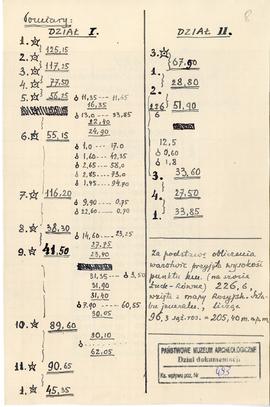 Pomiary:
DZIAŁ I.
1. 125,15
2. 117,25
3. 77,50
4. 
5. 
11,35 — 11,65
16,35
13,0 — 33,85
22,40
24,90
6. 55,15
1,0 — 17,0
1,60 — 42,35
2,65 — 58,0
2,85 — 73,0
1,95 — 94,70
7. 116,20
9,90 — 0,75
22,60 — 0,70
8. 38,30
14,60 — 23,25
27,75
9. 41,50
29,40
31,35 — 3,50
31,90
31,40
7,90 — 60,55
30,05
10. 89,60
30,10
62,05
11. 90,65
1. 45,35
DZIAŁ II.
3. 67,90
1. 28,80
2. 51,90
226
6
12,5
0,60
1,8
3. 33,60
4. 27,50
1. 33,85
Za podstawę obliczenia
warstwic przyjęto wysokość
punktu
Żuck-Równe) 226,6,
wziętą z mapy Rosyjsk. Szta-
bu jeneraln., licząc
96,3 sąż. ros. = 205,40 m. n.p.m.
PAŃSTWOWE MUZEUM ARCHEOLOGICZNE
Dział dokumentacji
Ks. wpływu poz. Nr 493